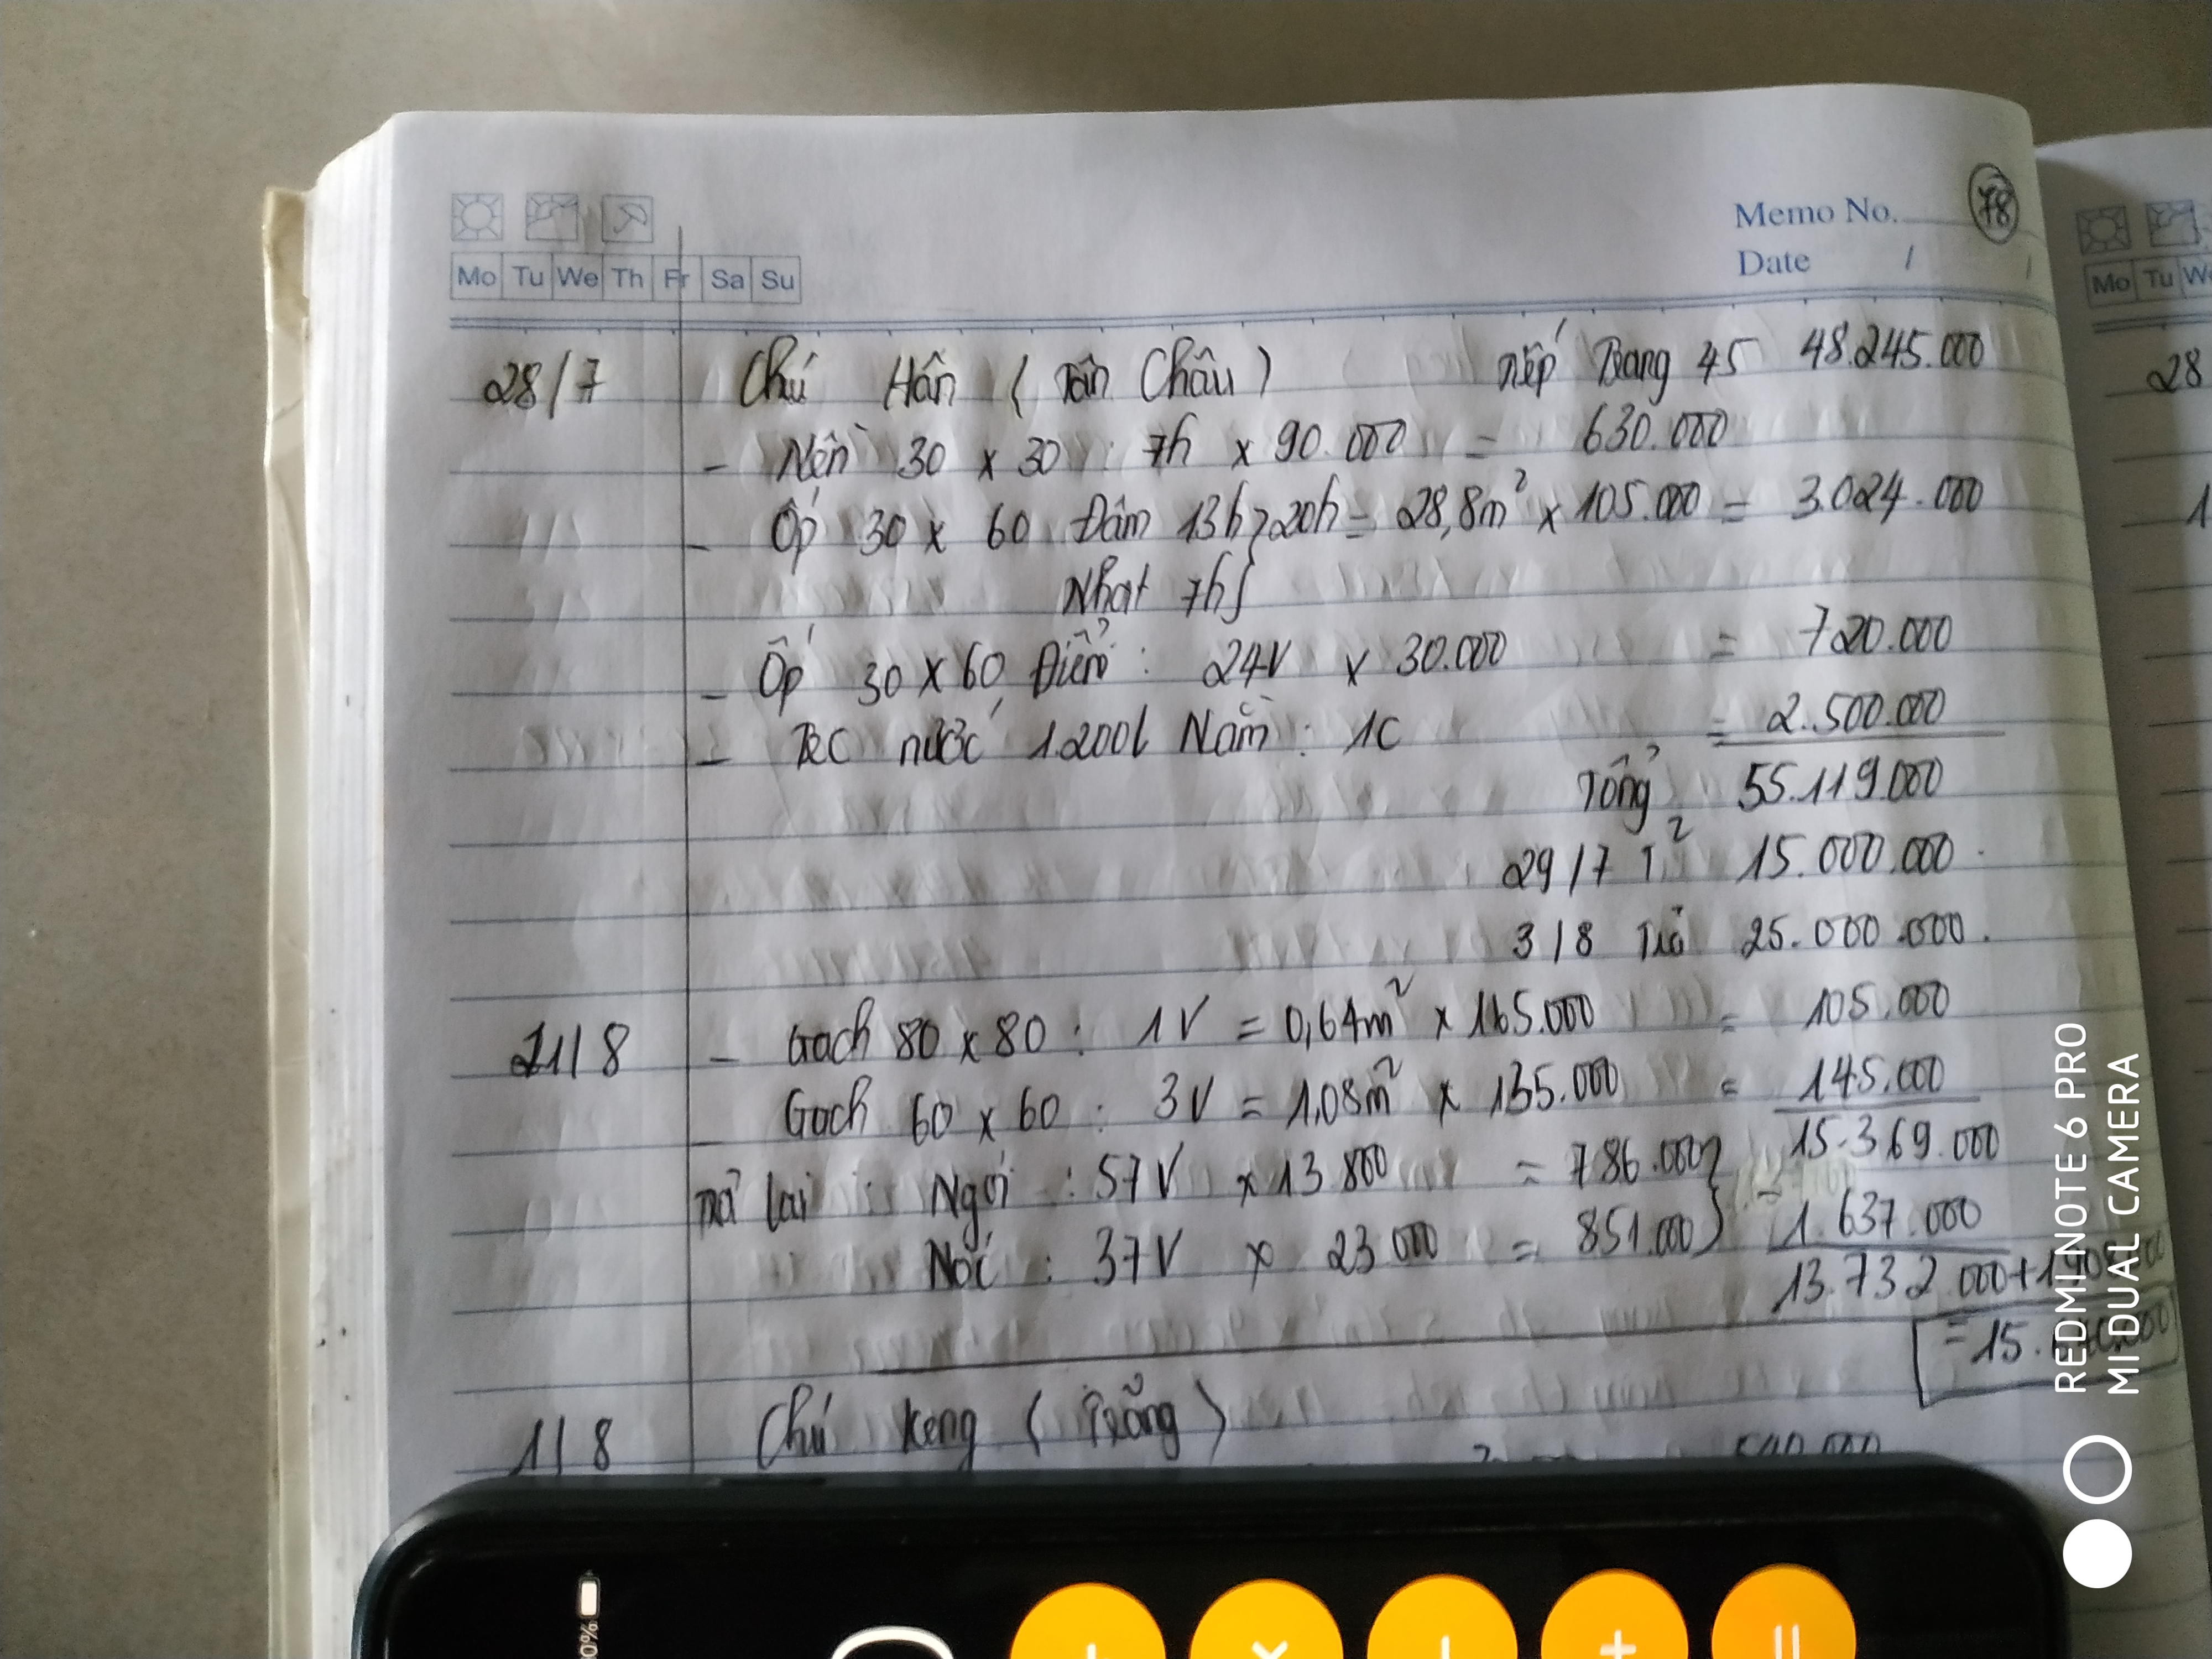 Memo No. 78
Mo Tu We Th Fr Sa Su
Date / /
28/7 Chú Hân (Tân Châu) tiếp Trang 45 48.245.000
- Nền 30 x 30 : 7h x 90.000 = 630.000
- Ốp 30 x 60 Đậm 13h } 20h = 28,8m² x 105.000 = 3.024.000
Nhạt 7h
- Ốp 30 x 60 Điểm : 24V x 30.000 = 720.000
- nước 1200l Nằm : 1c = 2.500.000
Tổng 55.119.000
29/7 T² 15.000.000.
3/8 Trả 25.000.000.
21/8 - Gạch 80 x 80 : 1V = 0,64m² x 165.000 = 105.000
- Gạch 60 x 60 : 3V = 1,08m² x 135.000 = 145.000
15.369.000
trả lại : Ngói : 57V x 13 800 = 786.000 } 1.637.000
Nóc : 37V x 23 000 = 851.000
13.732.000+1
= 15.
11/8 Chú
0%
+
×
−
+
=
Mo Tu We
28
1
REDMI NOTE 6 PRO
MI DUAL CAMERA